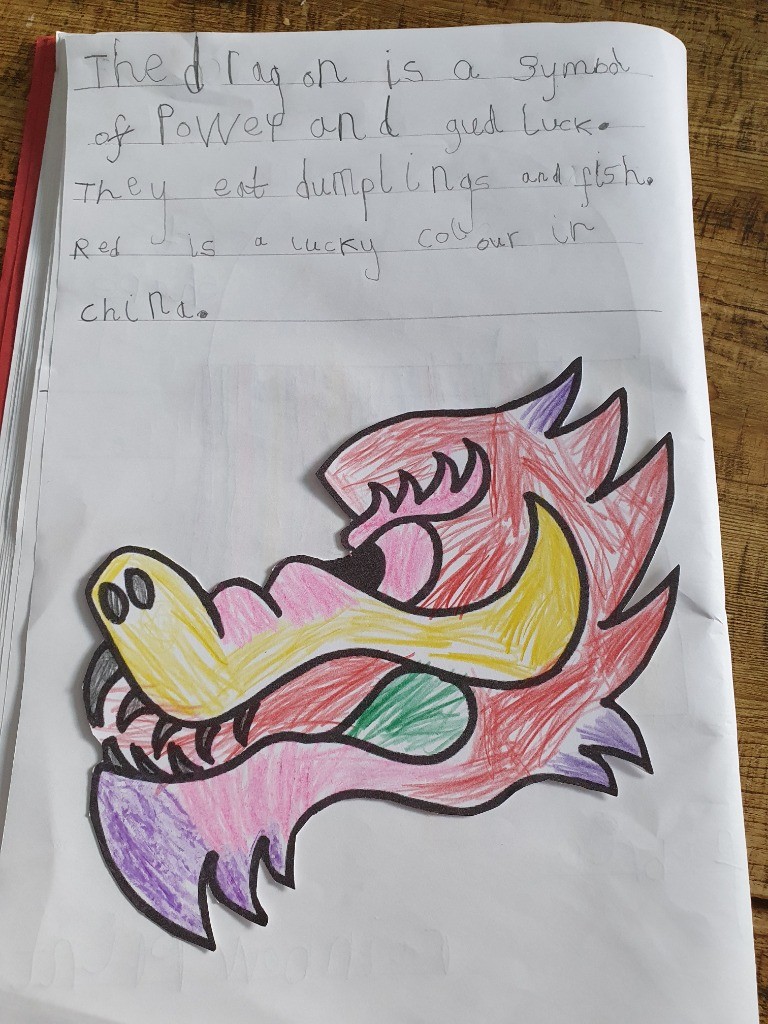 The dragon is a symbol
of Power and gud luck.
They eat dumplings and fish.
Red is a lucky colour in
china.